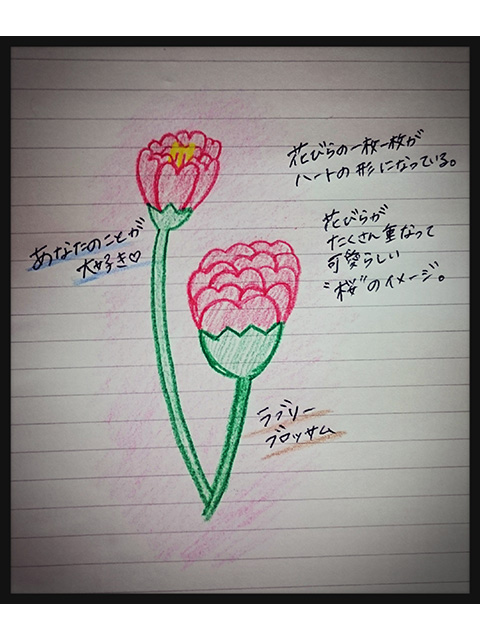 花びらの一枚一枚が
ハートの形になっている。
花びらが
たくさん重なって
可愛らしい
"桜"のイメージ。
あなたのことが
大好き♡
ラブリー
ブロッサム